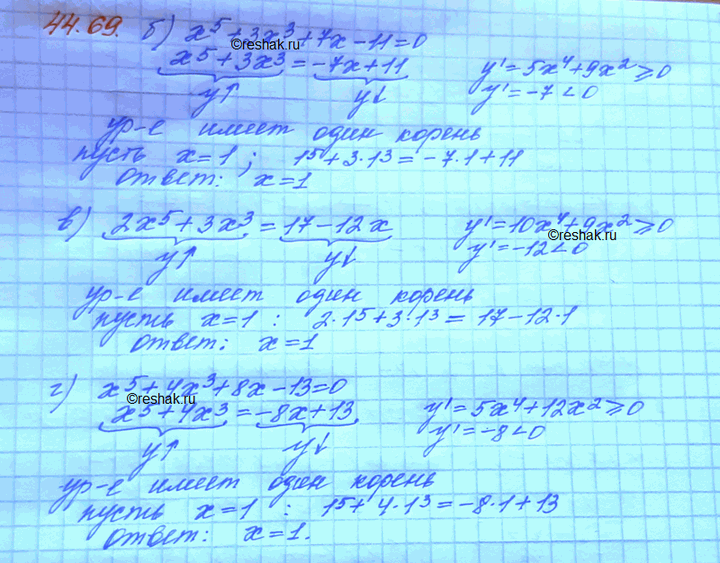 44.69. б) x⁵+3x³+7x-11=0
©reshak.ru
x⁵+3x³=-7x+11 y'=5x⁴+9x²≥0
y↑ y↓ y'=-7<0
ур-е имеет один корень
пусть x=1; 1⁵+3·1³=-7·1+11
ответ: x=1
в) 2x⁵+3x³=17-12x y'=10x⁴+9x²≥0
©reshak.ru
y↑ y↓ y'=-12<0
ур-е имеет один корень
пусть x=1 : 2·1⁵+3·1³=17-12·1
ответ: x=1
г) x⁵+4x³+8x-13=0
©reshak.ru
x⁵+4x³=-8x+13 y'=5x⁴+12x²≥0
y↑ y↓ y'=-8<0
ур-е имеет один корень
пусть x=1 : 1⁵+4·1³=-8·1+13
ответ: x=1.